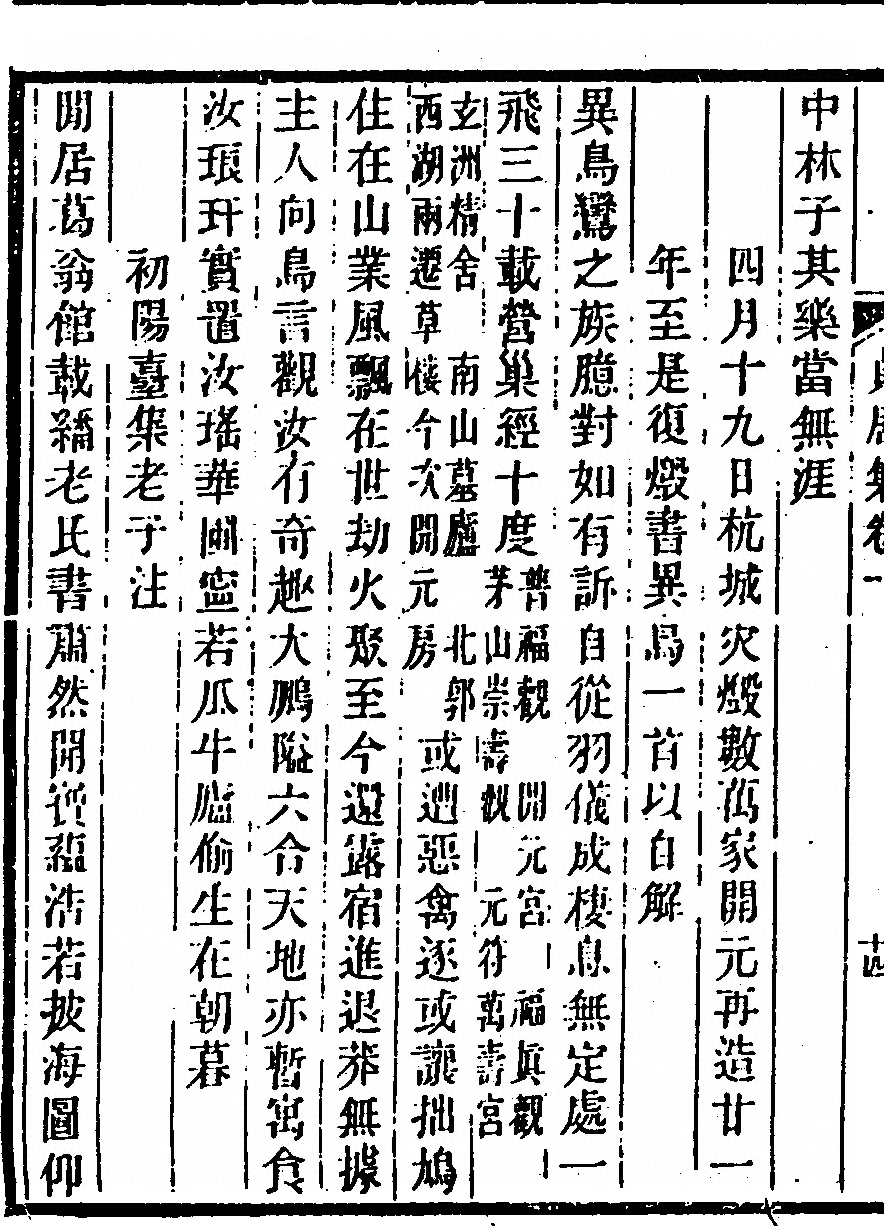 貞居集卷一
十四
中林子其樂當無涯
四月十九日杭城灾燬數萬家開元再造廿一
年至是復燬書異鳥一首以自解
異鳥鸞之族臆對如有訴自從羽儀成棲息無定處一
飛三十載營巢經十度
普福觀 開元宮 福真觀
茅山崇壽觀 元符萬壽宮
玄洲精舍 南山墓廬 北郭
西湖兩遷草樓今次開元房
或遭惡禽逐或讓拙鳩
住在山業風飄在世劫火聚至今還露宿進退莽無據
主人向鳥言觀汝有奇趣大鵬隘六合天地亦暫寓食
汝琅玕實置汝瑤華圃寧若瓜牛廬偷生在朝暮
初陽臺集老子注
閒居葛翁館載繙老氏書肅然開寶蘊浩若披海圖仰